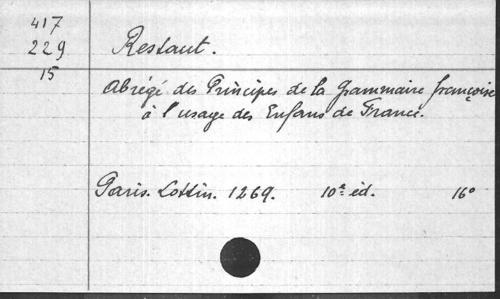 417
229
15
Restaut.
Abrégé des Principes de la Grammaire françoise
à l'usage des Enfans de France.
Paris. Lottin. 1769. 10e éd. 16°